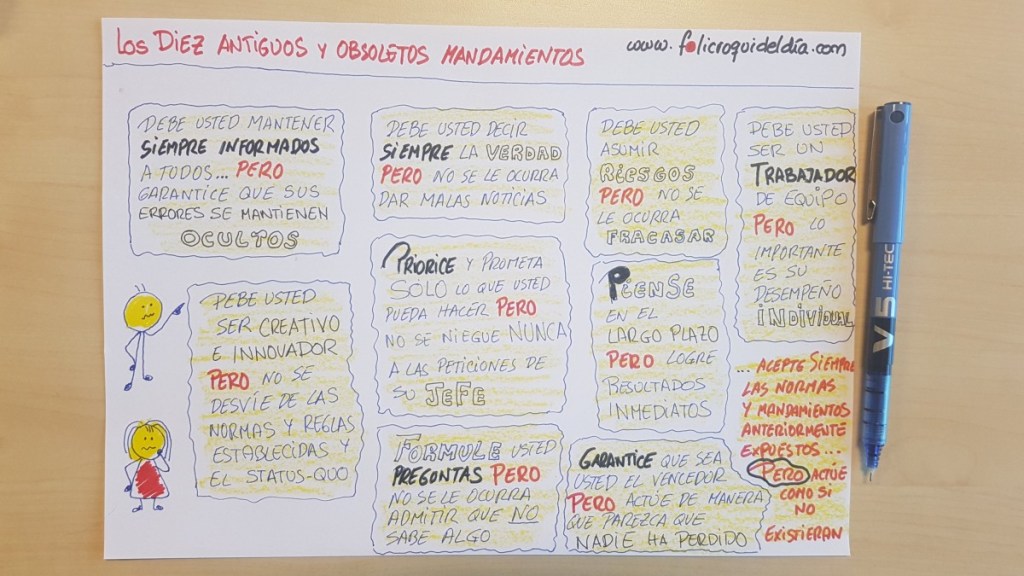 LOS DIEZ ANTIGUOS Y OBSOLETOS MANDAMIENTOS
www.folicroquideldía.com
DEBE USTED MANTENER
SIEMPRE INFORMADOS
A TODOS... PERO
GARANTICE QUE SUS
ERRORES SE MANTIENEN
OCULTOS
DEBE USTED DECIR
SIEMPRE LA VERDAD
PERO NO SE LE OCURRA
DAR MALAS NOTICIAS
DEBE USTED
ASUMIR
RIESGOS
PERO NO SE
LE OCURRA
FRACASAR
DEBE USTED
SER UN
TRABAJADOR
DE EQUIPO
PERO LO
IMPORTANTE
ES SU
DESEMPEÑO
INDIVIDUAL
DEBE USTED
SER CREATIVO
E INNOVADOR
PERO NO SE
DESVÍE DE LAS
NORMAS Y REGLAS
ESTABLECIDAS Y
EL STATUS-QUO
PRIORICE Y PROMETA
SOLO LO QUE USTED
PUEDA HACER PERO
NO SE NIEGUE NUNCA
A LAS PETICIONES DE
SU JEFE
PIENSE
EN EL
LARGO PLAZO
PERO LOGRE
RESULTADOS
INMEDIATOS
FORMULE USTED
PREGUNTAS PERO
NO SE LE OCURRA
ADMITIR QUE NO
SABE ALGO
GARANTICE QUE SEA
USTED EL VENCEDOR
PERO ACTÚE DE MANERA
QUE PAREZCA QUE
NADIE HA PERDIDO
... ACEPTE SIEMPRE
LAS NORMAS
Y MANDAMIENTOS
ANTERIORMENTE
EXPUESTOS...
PERO ACTÚE
COMO SI
NO
EXISTIERAN
V5 HI-TEC